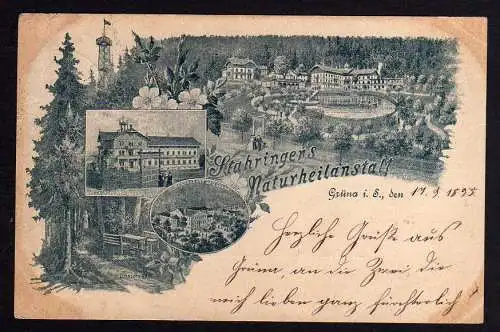 Stahringer's
Naturheilanstalt
Grüna i. S., den 17. 9. 1895
Herzliche Grüße aus
Grüna, an die Zwei die
mich lieben ganz fürchterlich